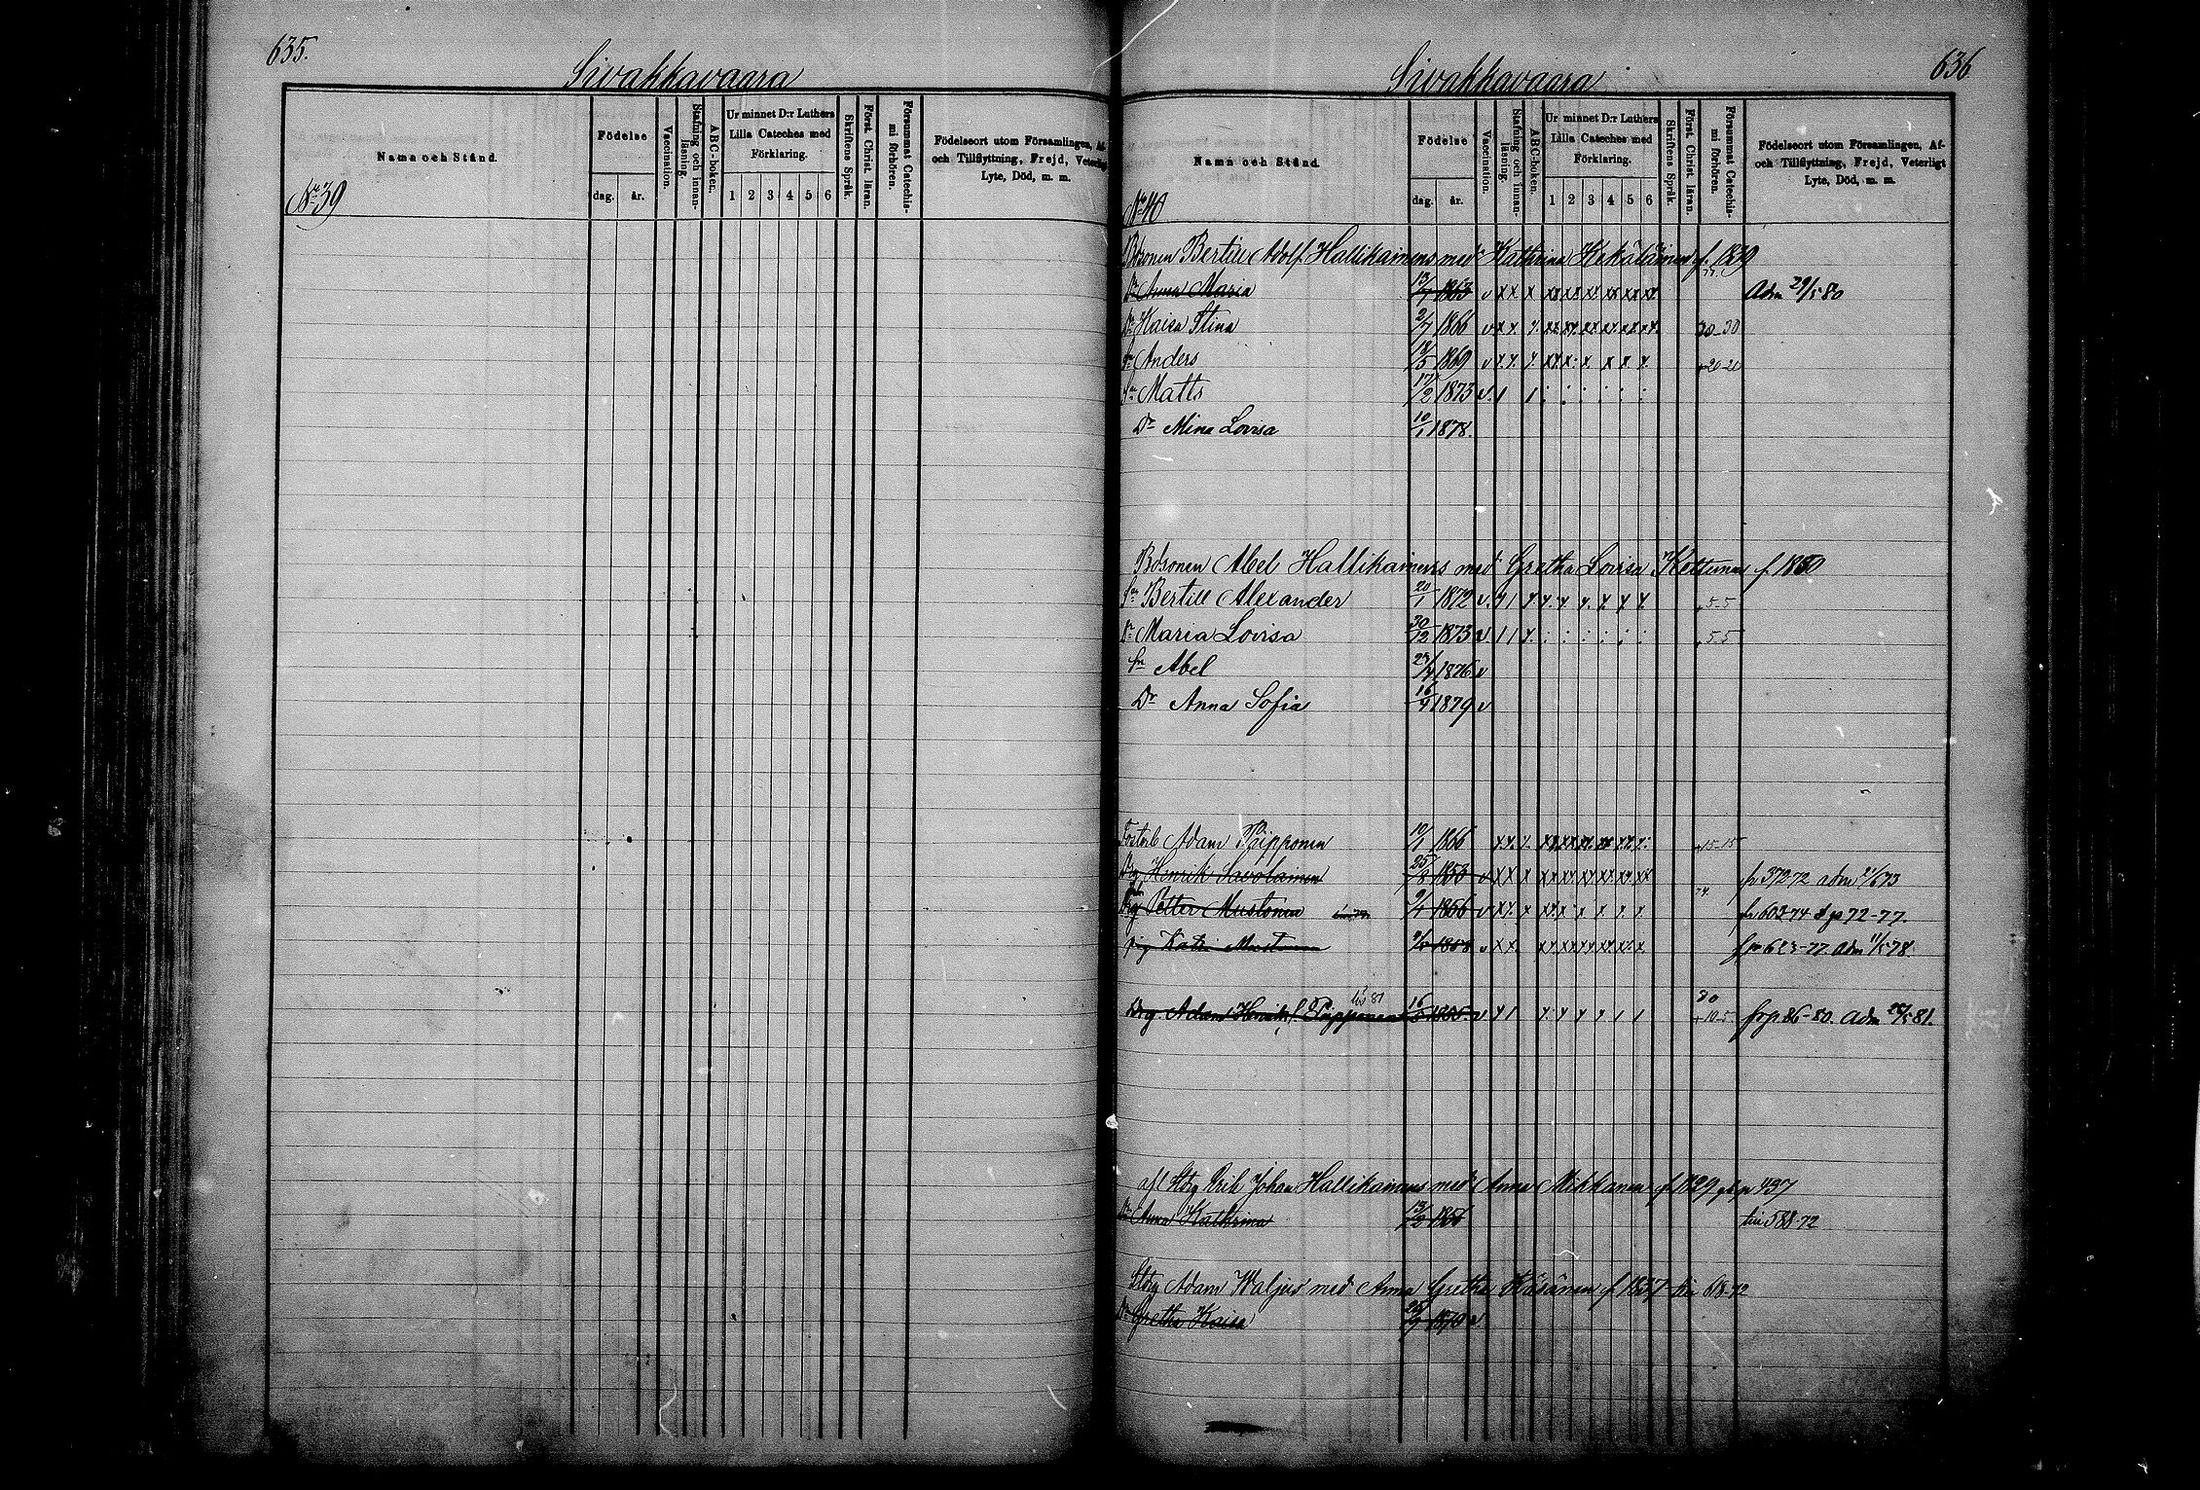 635.
Sivakkavaara
Namn och Stånd.
Födelse
dag. år.
Vaccination.
Stafning och innanläsning.
ABC-boken.
Ur minnet D:r Luthers Lilla Cateches med Förklaring.
1 2 3 4 5 6
Skriftens Språk.
Först. Christ. läran.
Försummat Catechismi förhören.
Födelseort utom Församlingen, Af-
och Tillflyttning, Frejd, Veterligt
Lyte, Död, m. m.
No 39
636
Sivakkavaara
Namn och Stånd.
Födelse
dag. år.
Vaccination.
Stafning och innanläsning.
ABC-boken.
Ur minnet D:r Luthers Lilla Cateches med Förklaring.
1 2 3 4 5 6
Skriftens Språk.
Först. Christ. läran.
Försummat Catechismi förhören.
Födelseort utom Församlingen, Af-
och Tillflyttning, Frejd, Veterligt
Lyte, Död, m. m.
No 40
Bdsonen Bertill Adolf Hallikainens med Kathrina f. 1839
Dr Anna Maria 13/7 1863 v xx x Adm 29/5 80
Dr Kaisa Stina 2/7 1866 v 30-30
Sn Anders 18/5 1869 v 20-20
Sn Matts 17/2 1873 v
Dr Mina Lovisa 10/1 1878.
Bdsonen Abel Hallikainens med Gretha Lovisa Kettunen f 1850
Sn Bertill Alexander 20/1 1872 v. 5-5
Dr Maria Lovisa 30/12 1873 v. 5-5
Sn Abel 1876 v
Dr Anna Sofia 1879 v
Fosterb Adam Piipponen 10/1 1866 15-15
Drg Henrik Savolainen 1853 v fr 372-72 adm 73
Drg Petter Mustonen 1856 v fr 603-74 72-77.
Pig Kaisa Mustonen 1858 v fr 623-77. adm 78.
Drg. Adam Henrik Piipponen 16/5 10-5 fr p 86-80. Adm 81.
afl Storg Erik Johan Hallikainens med Anna Mikkanen f 1829 p 437
Dr Anna Kathrina 1856 till 588-72
Storg Adam Waljus med Anna Gretha Räsänen f 1837 till 618-72
Dr Gretha Kaisa 1870 v.